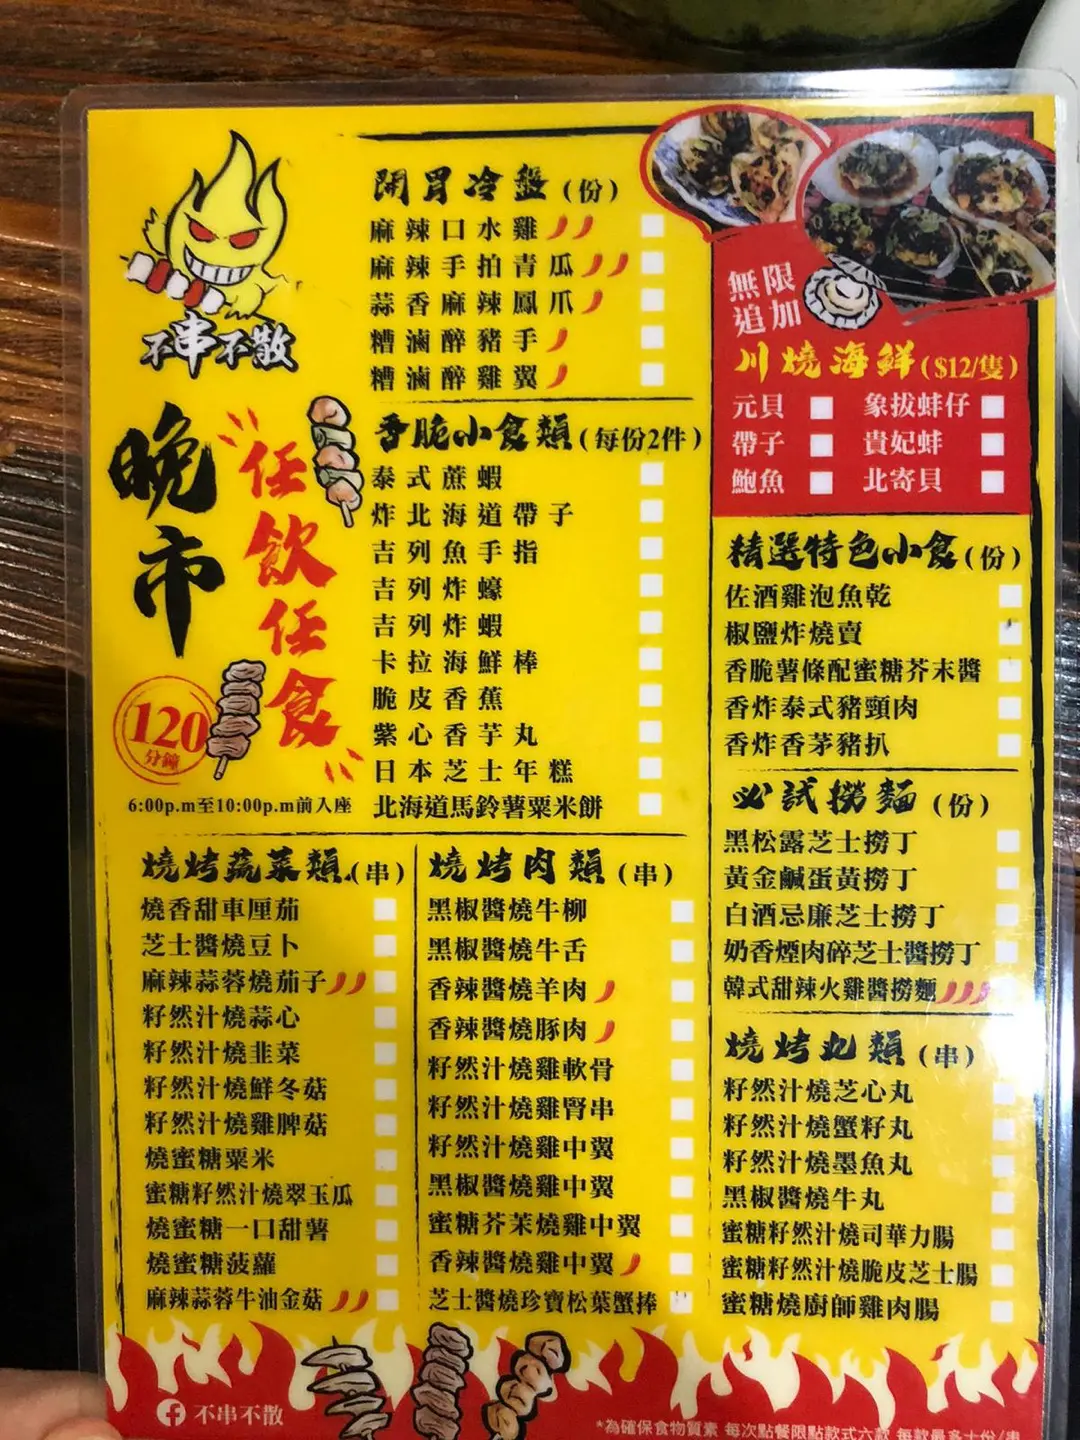 不串不散
晚市
任飲任食
120
分鐘
6:00p.m至10:00p.m前入座
開胃冷盤(份)
麻辣口水雞
麻辣手拍青瓜
蒜香麻辣鳳爪
糟滷醉豬手
糟滷醉雞翼
香脆小食類(每份2件)
泰式蔗蝦
炸北海道帶子
吉列魚手指
吉列炸蠔
吉列炸蝦
卡拉海鮮棒
脆皮香蕉
紫心香芋丸
日本芝士年糕
北海道馬鈴薯粟米餅
無限
追加
川燒海鮮($12/隻)
元貝
象拔蚌仔
帶子
貴妃蚌
鮑魚
北寄貝
精選特色小食(份)
佐酒雞泡魚乾
椒鹽炸燒賣
香脆薯條配蜜糖芥末醬
香炸泰式豬頸肉
香炸香茅豬扒
必試撈麵(份)
黑松露芝士撈丁
黃金鹹蛋黃撈丁
白酒忌廉芝士撈丁
奶香煙肉碎芝士醬撈丁
韓式甜辣火雞醬撈麵
燒烤蔬菜類(串)
燒香甜車厘茄
芝士醬燒豆卜
麻辣蒜蓉燒茄子
籽然汁燒蒜心
籽然汁燒韭菜
籽然汁燒鮮冬菇
籽然汁燒雞脾菇
燒蜜糖粟米
蜜糖籽然汁燒翠玉瓜
燒蜜糖一口甜薯
燒蜜糖菠蘿
麻辣蒜蓉牛油金菇
燒烤肉類(串)
黑椒醬燒牛柳
黑椒醬燒牛舌
香辣醬燒羊肉
香辣醬燒豚肉
籽然汁燒雞軟骨
籽然汁燒雞腎串
籽然汁燒雞中翼
黑椒醬燒雞中翼
蜜糖芥茉燒雞中翼
香辣醬燒雞中翼
芝士醬燒珍寶松葉蟹捧
燒烤丸類(串)
籽然汁燒芝心丸
籽然汁燒蟹籽丸
籽然汁燒墨魚丸
黑椒醬燒牛丸
蜜糖籽然汁燒司華力腸
蜜糖籽然汁燒脆皮芝士腸
蜜糖燒廚師雞肉腸
不串不散
*為確保食物質素 每次點餐限點款式六款 每款最多十份/串